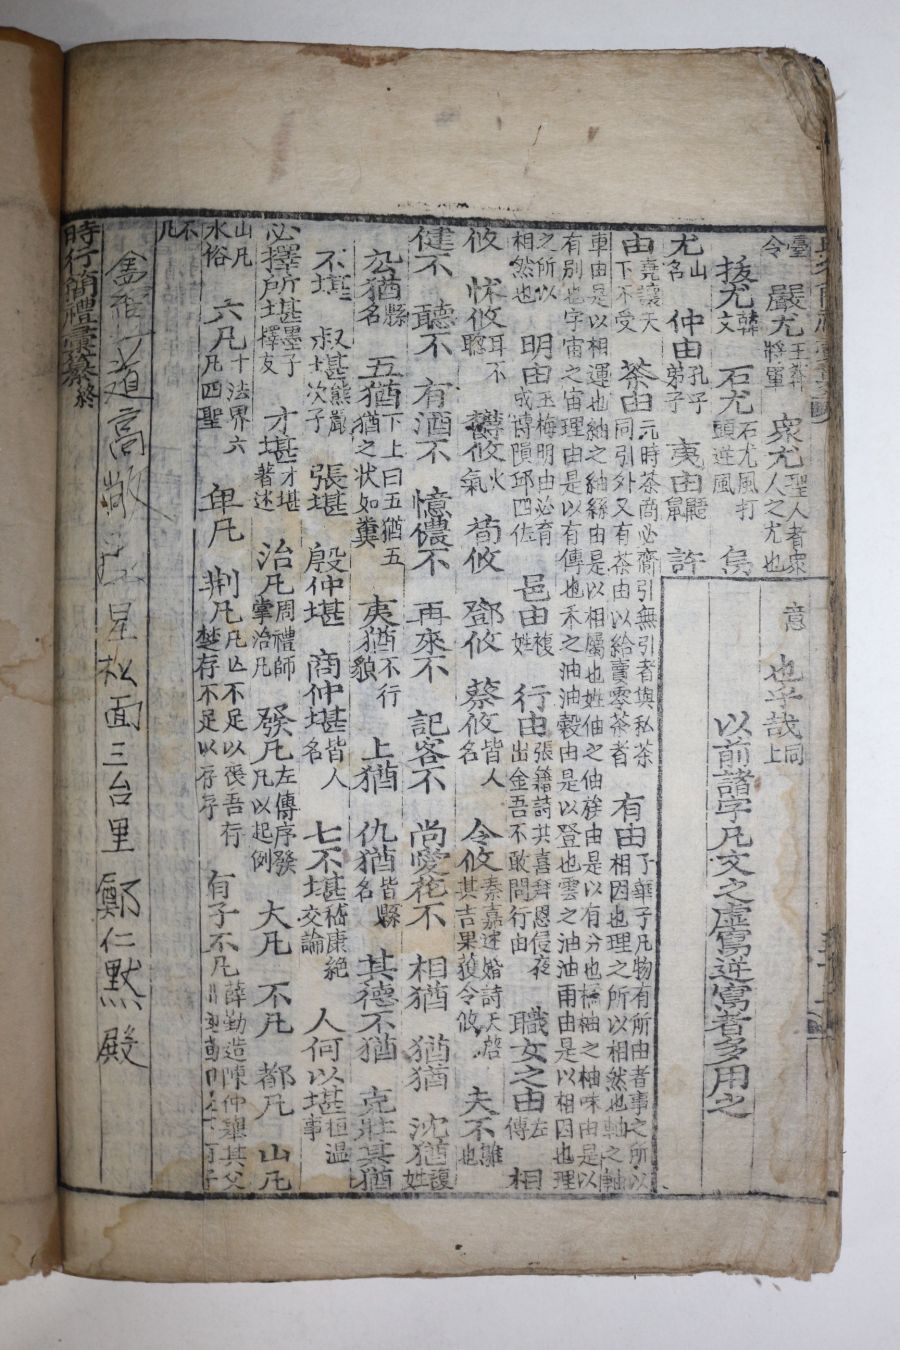 意 也乎哉同上
以前諸字凡文之虛寫逆寫者多用之
臺令 嚴尤王莽將軍 衆尤人之尤也聖人者衆
拔尤韓文 石尤石尤風打頭逆風
尤山名 仲由孔子弟子 夷由 許
由堯讓天下不受 茶由元時茶商必齎引無引者與私茶同引外又有茶由以給賣零茶者 有由子華子凡物有所由者事之所以相因也理之所以相然也軸之軸
車由是以相運也紬之紬絲由是以相屬也姓
有別也宇宙之宙理由是以有傳也禾之油油穀由是以登也雲之油油雨由是以相因也理
之所以相然也 明由王梅明由必育成博隕邱四佐 邑由複姓 行由張籍詩其喜拜恩侵夜出金吾不敢問行由 職女之由左傳 相
攸 怵攸耳不聰 鬱攸火氣 荀攸 鄧攸 蔡攸皆人名 令攸秦嘉述婚詩天啓其吉果獲令攸 夫不鵻也
健不 聽不 有酒不 憶儂不 再來不 記客不 尚愛花不 相猶 猶猶 沈猶複姓
厹猶縣名 五猶下上曰五猶五猶之狀如糞 夷猶不行貌 上猶 仇猶皆縣名 其德不猶 克壯其猶
不堪 叔堪熊嚴次子 張堪 殷仲堪 商仲堪皆人名 七不堪嵇康絶交論 人何以堪桓温事
必擇所堪墨子擇友 才堪才堪著述 治凡周禮師掌治凡 發凡左傳序發凡以起例 大凡 不凡 都凡 山凡
山凡水俗 六凡十法界六凡四聖 卑凡 荆凡凡亡不足以喪吾存楚存不足以存存 有子不凡薛勤造陳仲舉其父
不凡
三台里鄭仁默殿
時行簡禮彙纂終